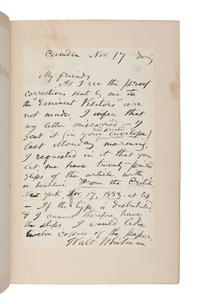 Camden Nov. 17
My friends
As I see the proof
corrections sent by me in
the "Eminent Visitors" are
not made I infer that
my letter miscarried - I
sent it (in your envelope)
last Monday morning.
I requested in it that you
let me have twenty printed
slips of the article with
a headline "From the Critic
New York, Nov. 17, 1883, at top
- If the type is distributed
& I cannot therefore have
the slips, I would like
twelve copies of the paper
Walt Whitman